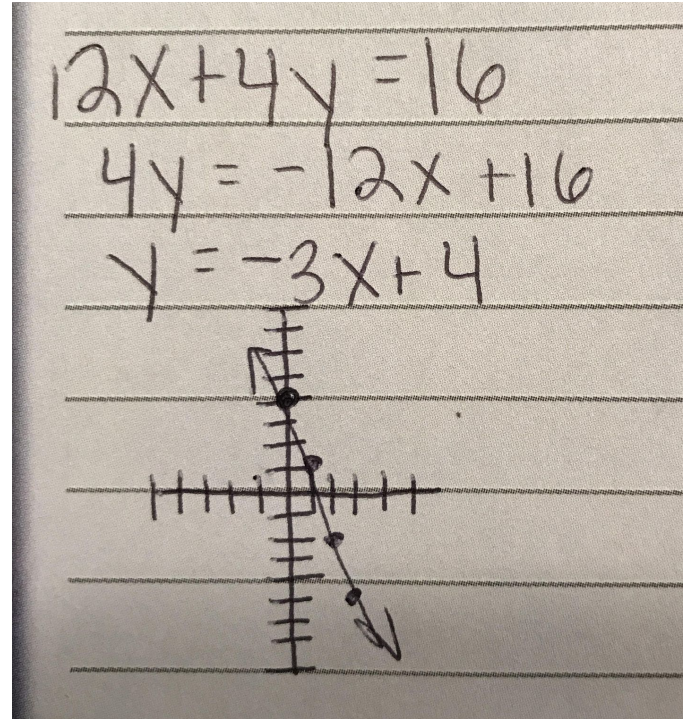 12x+4y=16
4y=-12x+16
y=-3x+4